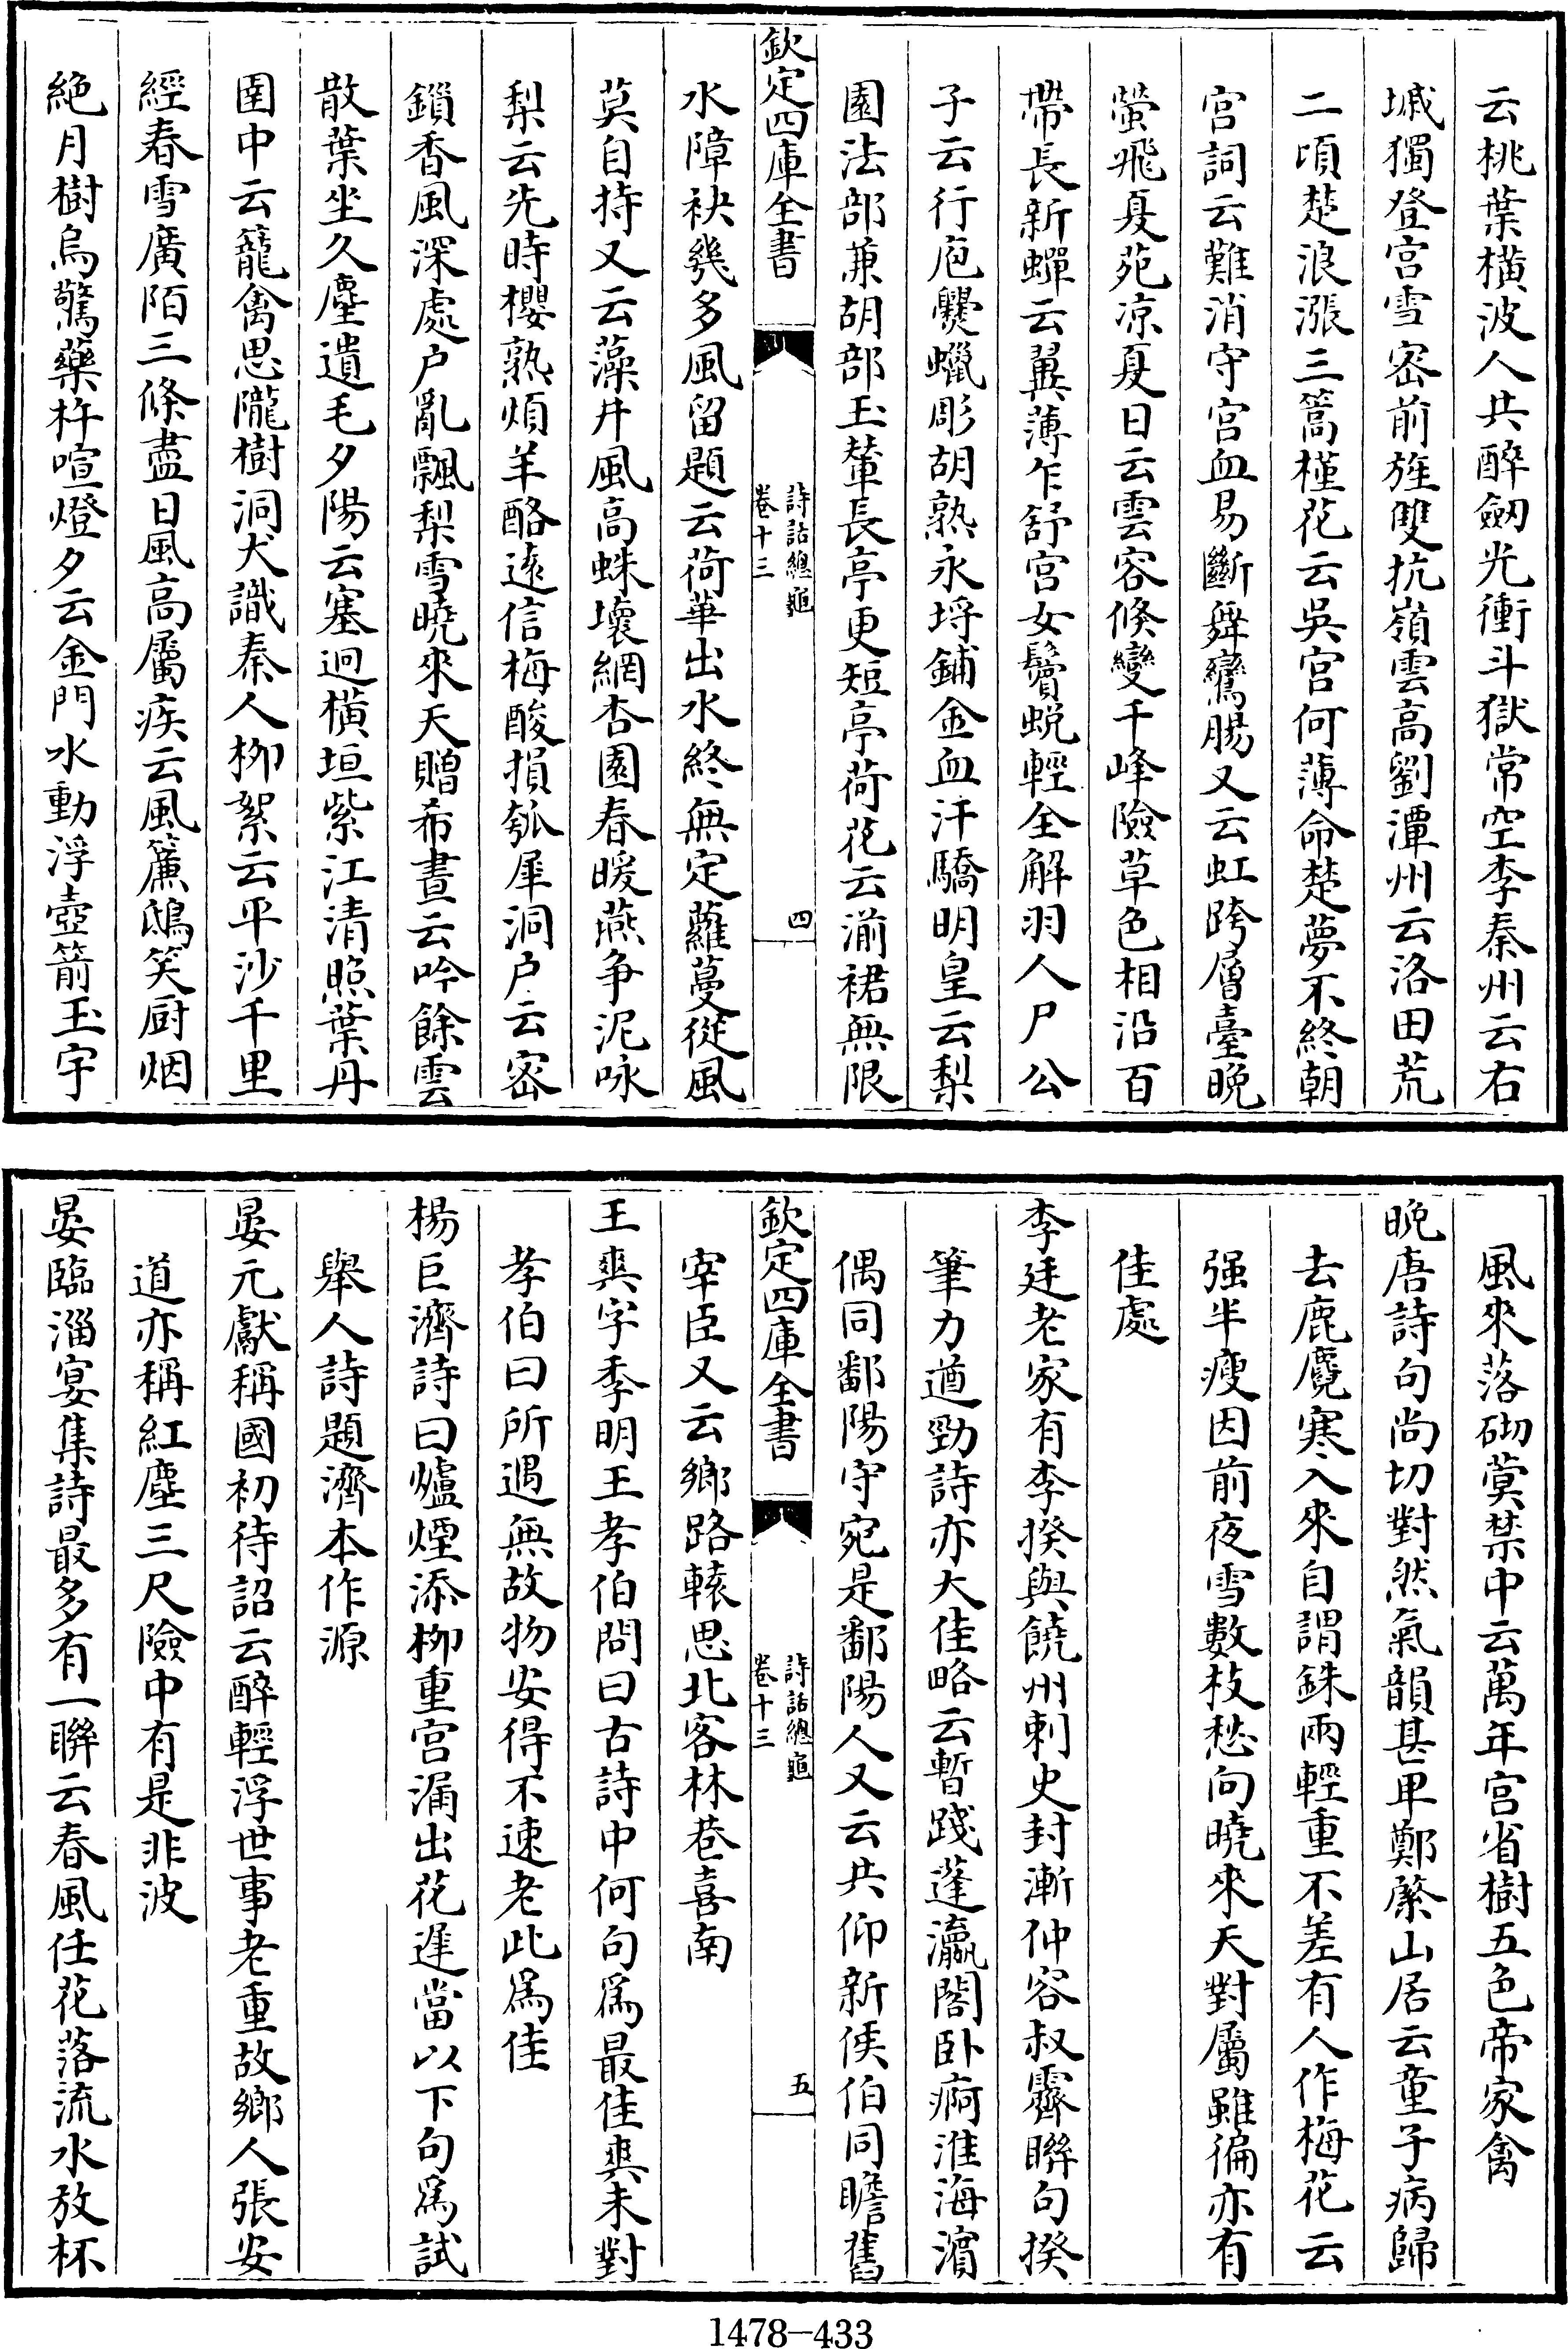 云桃葉横波人共醉劒光衝斗獄常空李秦州云右
墄獨登宫雪宻前旌雙抗嶺雲高劉潭州云洛田荒
二頃楚浪漲三篙槿花云吳宫何薄命楚夢不終朝
宫詞云難消守宫血易斷舞鸞腸又云虹跨層臺晚
螢飛夏苑凉夏日云雲容倐變千峰險草色相沿百
帶長新蟬云翼薄乍舒宫女鬢蛻輕全解羽人尸公
子云行庖爨蠟彫胡熟永埒鋪金血汗驕明皇云梨
園法部兼胡部玉輦長亭更短亭荷花云湔裙無限
欽定四庫全書
詩話總龜
卷十三
四
水障袂幾多風留題云荷華出水終無定蘿蔓從風
莫自持又云藻井風高蛛壞網杏園春暖燕争泥咏
梨云先時櫻熟煩羊酪逺信梅酸損瓠犀洞户云宻
鎖香風深處户亂飄梨雪曉來天贈希晝云吟餘雲
散葉坐久塵遺毛夕陽云塞迥横垣紫江清照葉丹
圉中云籠禽思隴樹洞犬識秦人栁絮云平沙千里
經春雪廣陌三條盡日風高屬疾云風簾鴟笑厨烟
絶月樹烏驚藥杵喧燈夕云金門水動浮壺箭玉宇
風來落砌蓂禁中云萬年宫省樹五色帝家禽
晚唐詩句尚切對然氣韻甚卑鄭綮山居云童子病歸
去鹿麑寒入來自謂銖兩輕重不差有人作梅花云
强半瘦因前夜雪數枝愁向曉來天對屬雖徧亦有
佳處
李廷老家有李揆與饒州刺史封漸仲容叔霽聨句揆
筆力遒勁詩亦大佳略云暫踐蓬瀛閣卧痾淮海濵
偶同鄱陽守宛是鄱陽人又云共仰新侯伯同瞻舊
欽定四庫全書
詩話總龜
卷十三
五
宰臣又云鄉路轅思北客林巷喜南
王爽字季明王孝伯問曰古詩中何句為最佳爽未對
孝伯曰所遇無故物安得不速老此為佳
楊巨濟詩曰爐煙添栁重宫漏出花遲當以下句為試
舉人詩題濟本作源
晏元獻稱國初待詔云醉輕浮世事老重故鄉人張安
道亦稱紅塵三尺險中有是非波
晏臨淄宴集詩最多有一聨云春風任花落流水放杯
1478—433